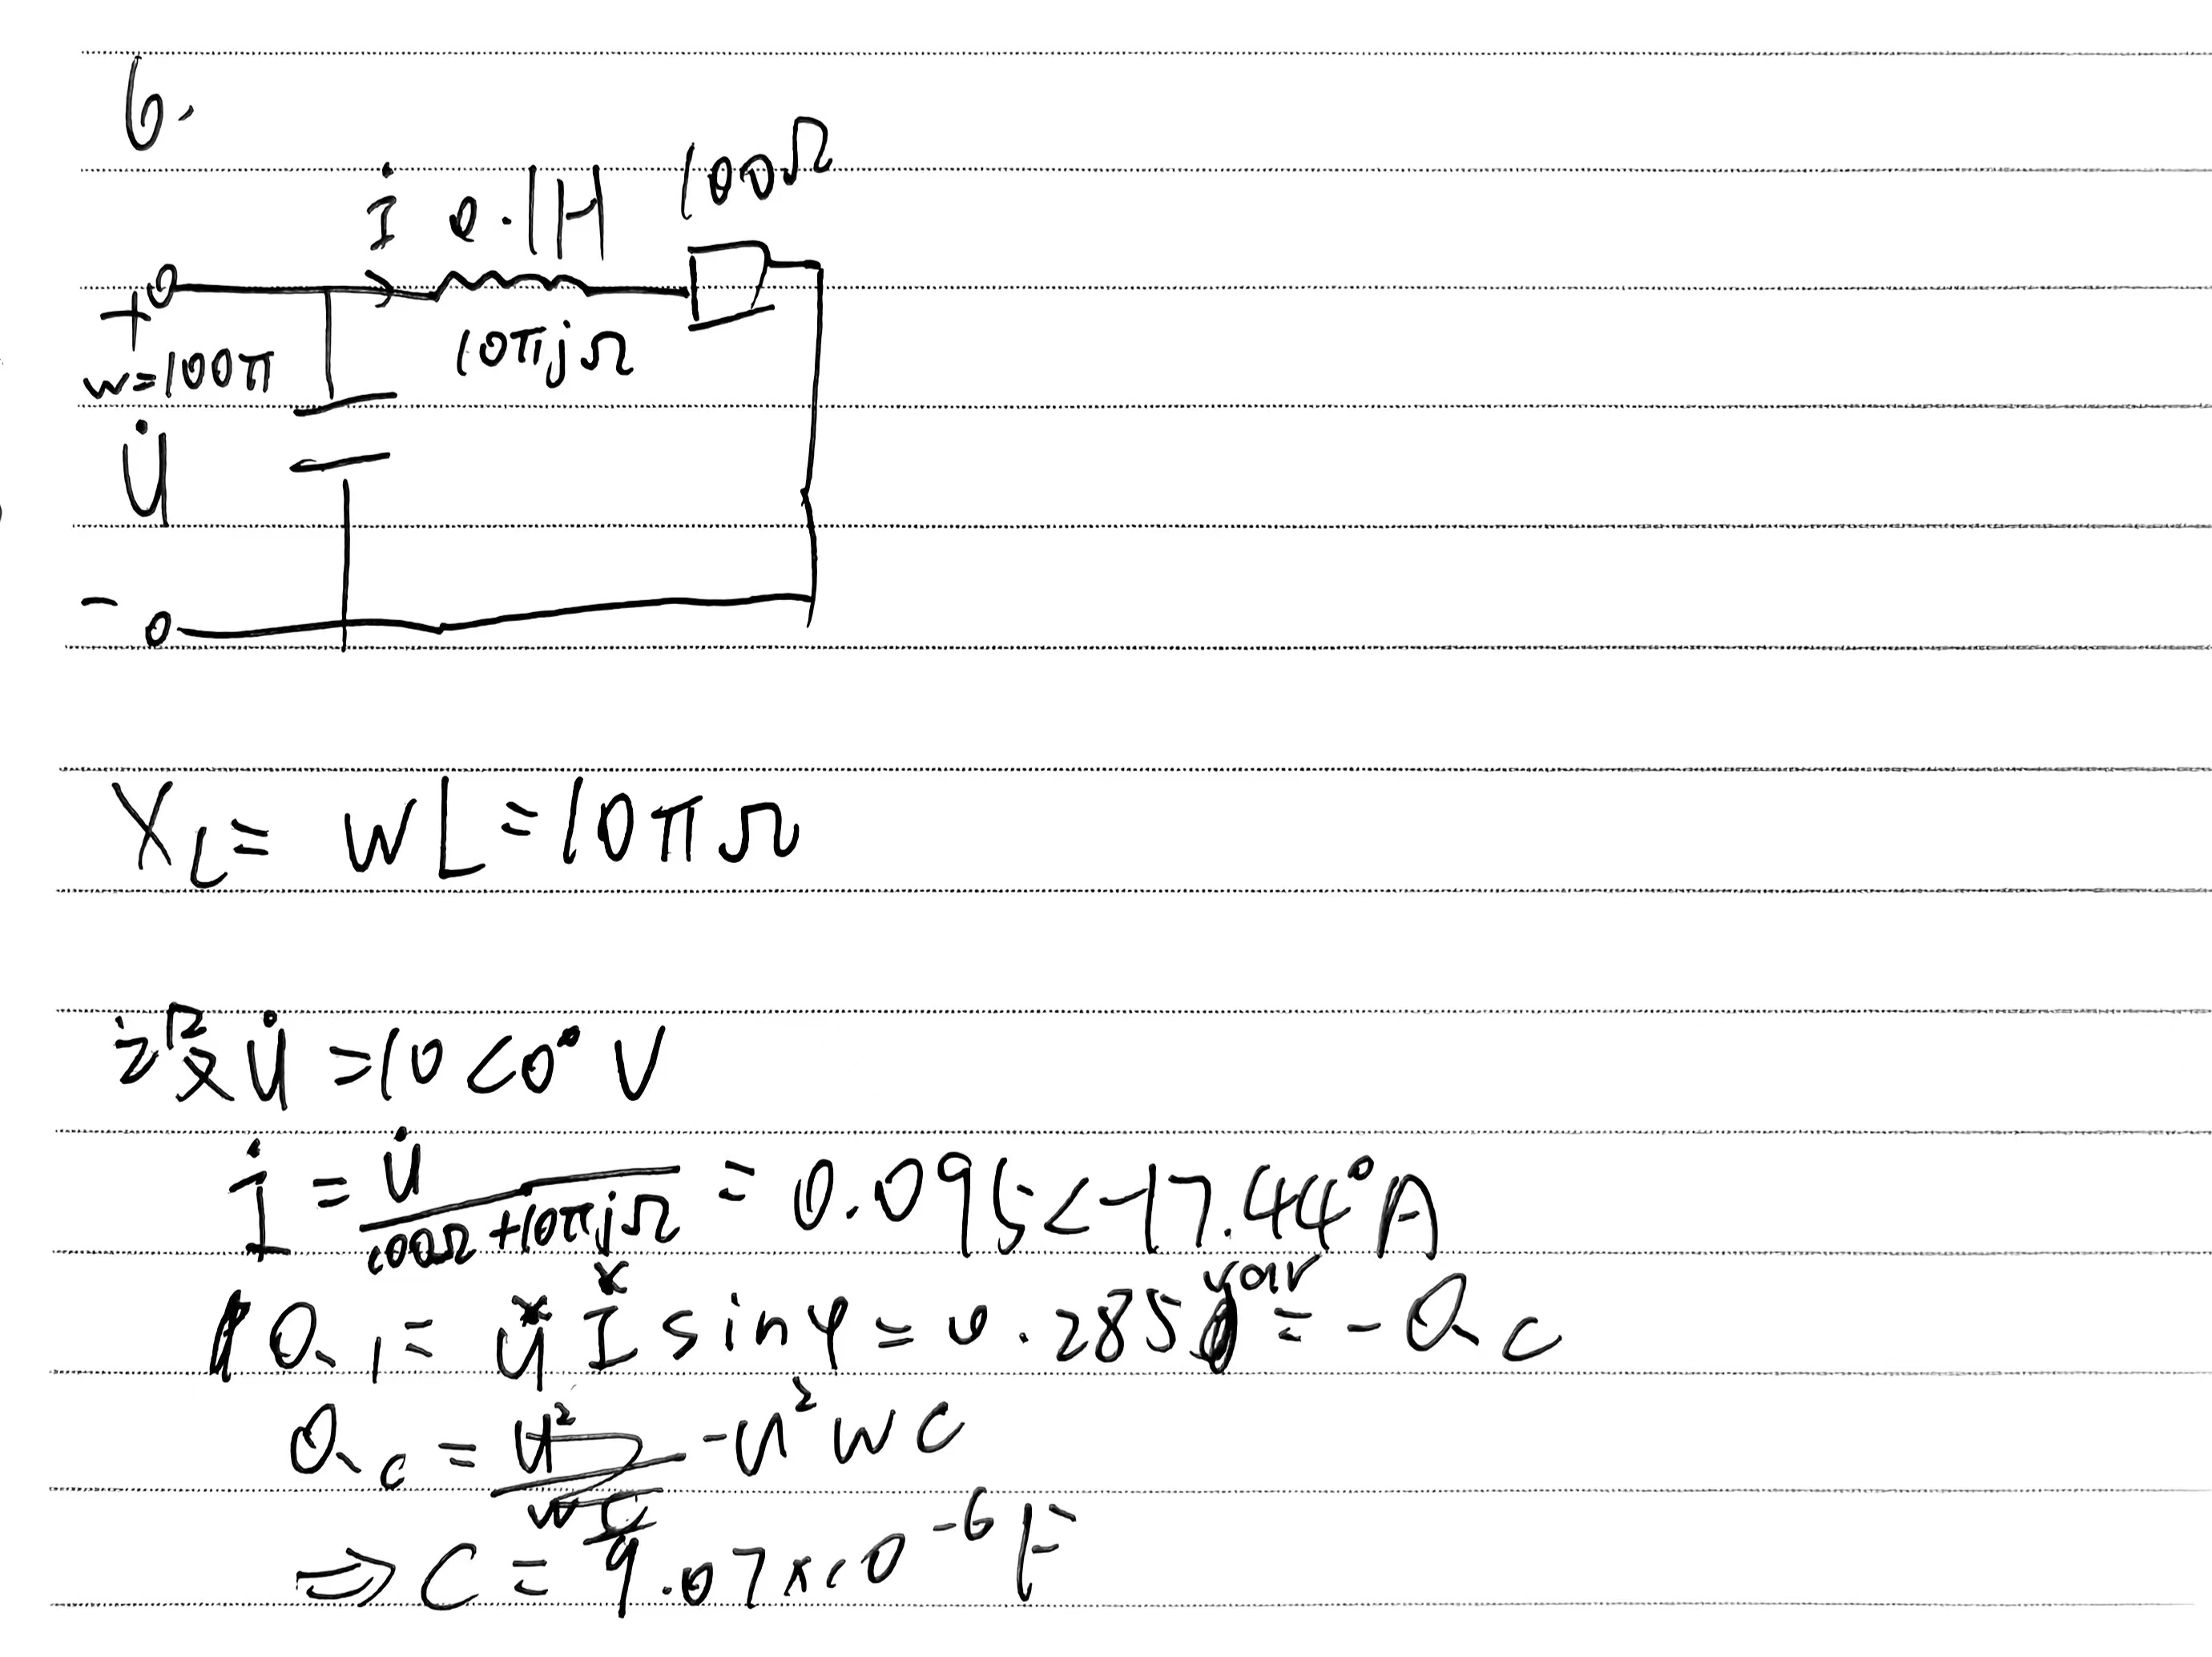 6.
İ 0.1H 100Ω
+
10πjΩ
w=100π
U̇
-
X_L = wL = 10πΩ
设U̇ = 10<0° V
İ = U̇/(100Ω+10πjΩ) = 0.095<-17.44°A
Q_1 = U I* sinφ = 0.285 var = -Q_C
Q_C = -U²wC
⇒ C = 9.07×10^-6 F